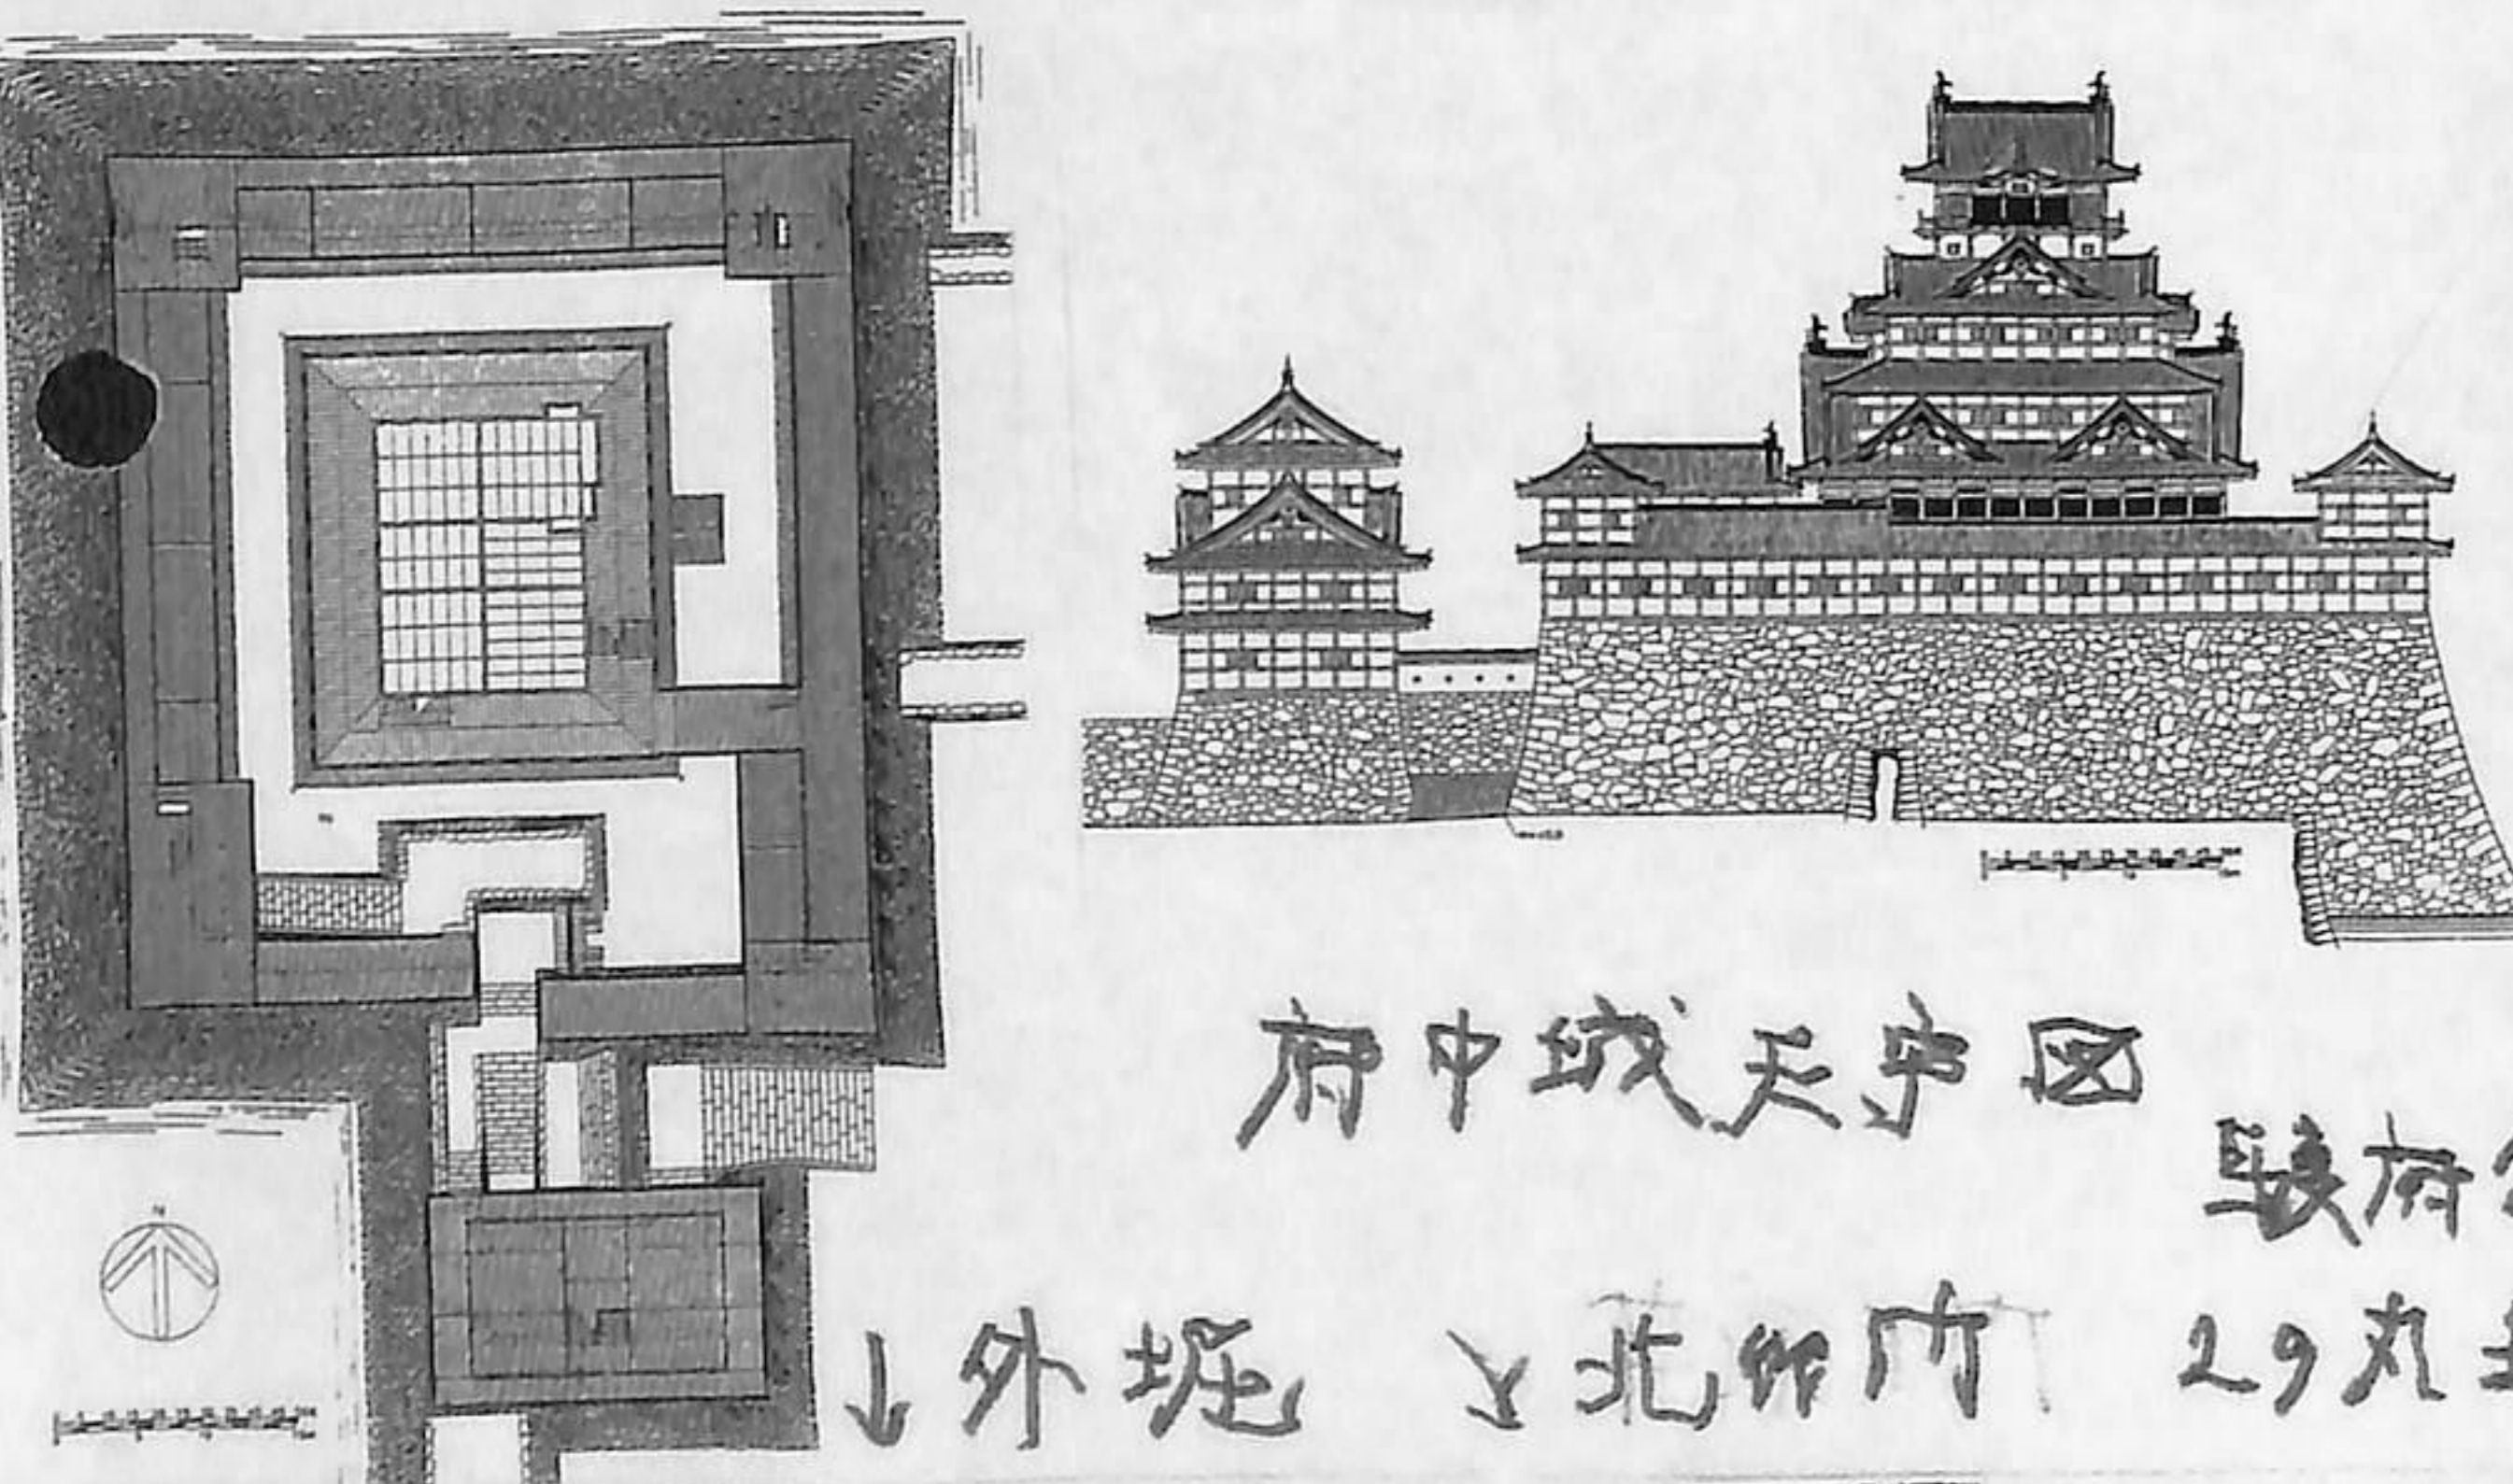 N
府中城天守図
駿府
↓外堀 ↘北御門 29丸